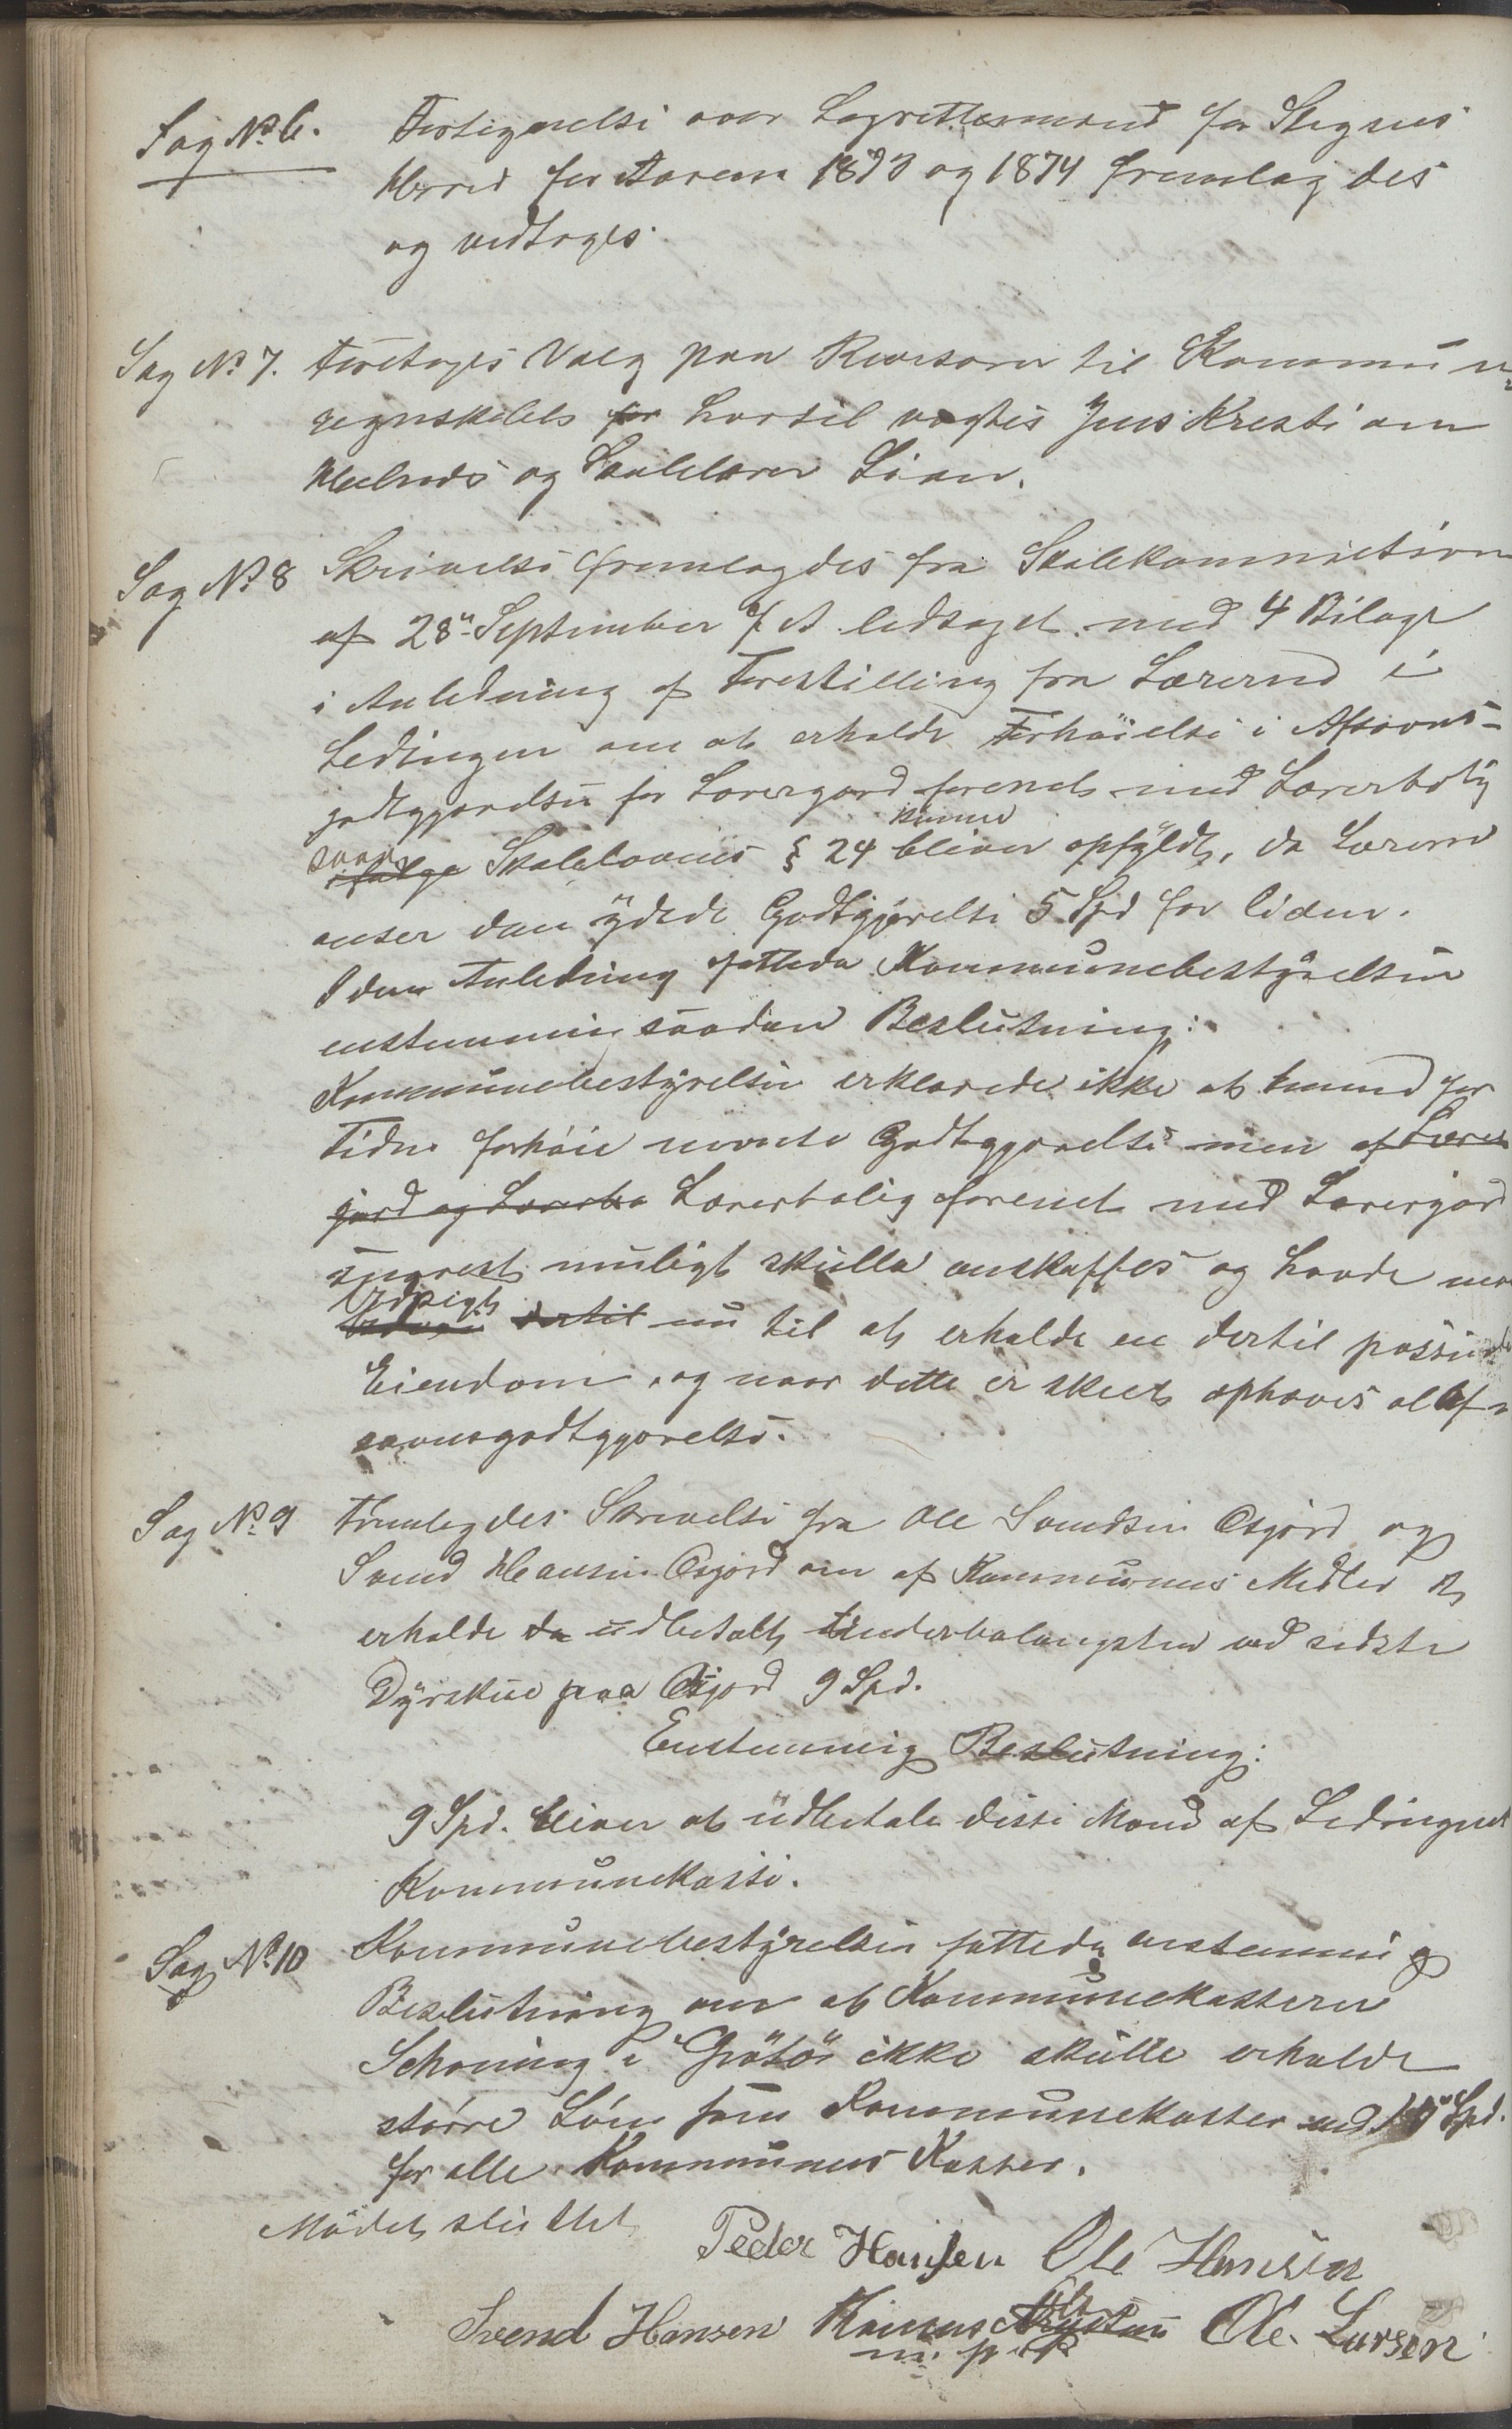 Sag No 6. Fortegnelse over Lagrettesmænd for Stegens
Herred for Aarene 1873 og 1874 fremlagdes
og vedtoges.
Sag No 7. Foretoges Valg paa Revisorer til Kommune
regnskabets for hvortil valgtes Jens Kristian
og Skolelærer
Sag No 8 Skrivelse fremlagdes fra Skolekommissionen
af 28de September f. A. ledsaget med 4 Bilage
i Anledning af Forestilling fra Lærerne i
Ledingen om at erholde Forhøielse i Afsavns-
godtgjørelsen for Lærergaard forenet med Lærerbolig
saa ifølge Skolelovens § 24 kunne bliver opfyldt, da Lærerne
anser den ydede Godtgjørelse 5 Spd for liden.
I den Anledning fattede Kommunebestyrelsen
enstemmig saadan Beslutning:
Kommunebestyrelsen erklærede ikke at kunne for
Tiden forhøie nævnte Godtgjørelse men af Lærer
jord og Lærerbo Lærerbolig forenet med Lærerjord
snarest muligt skulle anskaffes og havde man
Udsigt dertil nu til at erholde en dertil passende
Eiendom, og naar dette er skeet ophæves al Af-
savnsgodtgjørelse.
Sag No 9 Fremlagdes Skrivelse fra Ole Svendsen Osjord og
Svend Hansen Osjord om af Kommunens Midler at
erholde da udbetalt Underbalangsten ved sidste
Dyrskue paa Osjord 9 Spd.
Enstemmig Beslutning:
9 Spd. bliver at udbetale disse Mænd af Ledingens
Kommunekasse.
Sag No 10 Kommunebestyrelsen fattede enstemmig
Beslutning om at Kommunekasserer
Schøning i Grøtø ikke skulle erholde
større Løn som Kommunekasser end 10 Spd.
for alle Kommunens Kasser.
Mødet sluttet
Peder Hansen Ole Hansen
Svend Hansen Ole Larsen
m. p. P